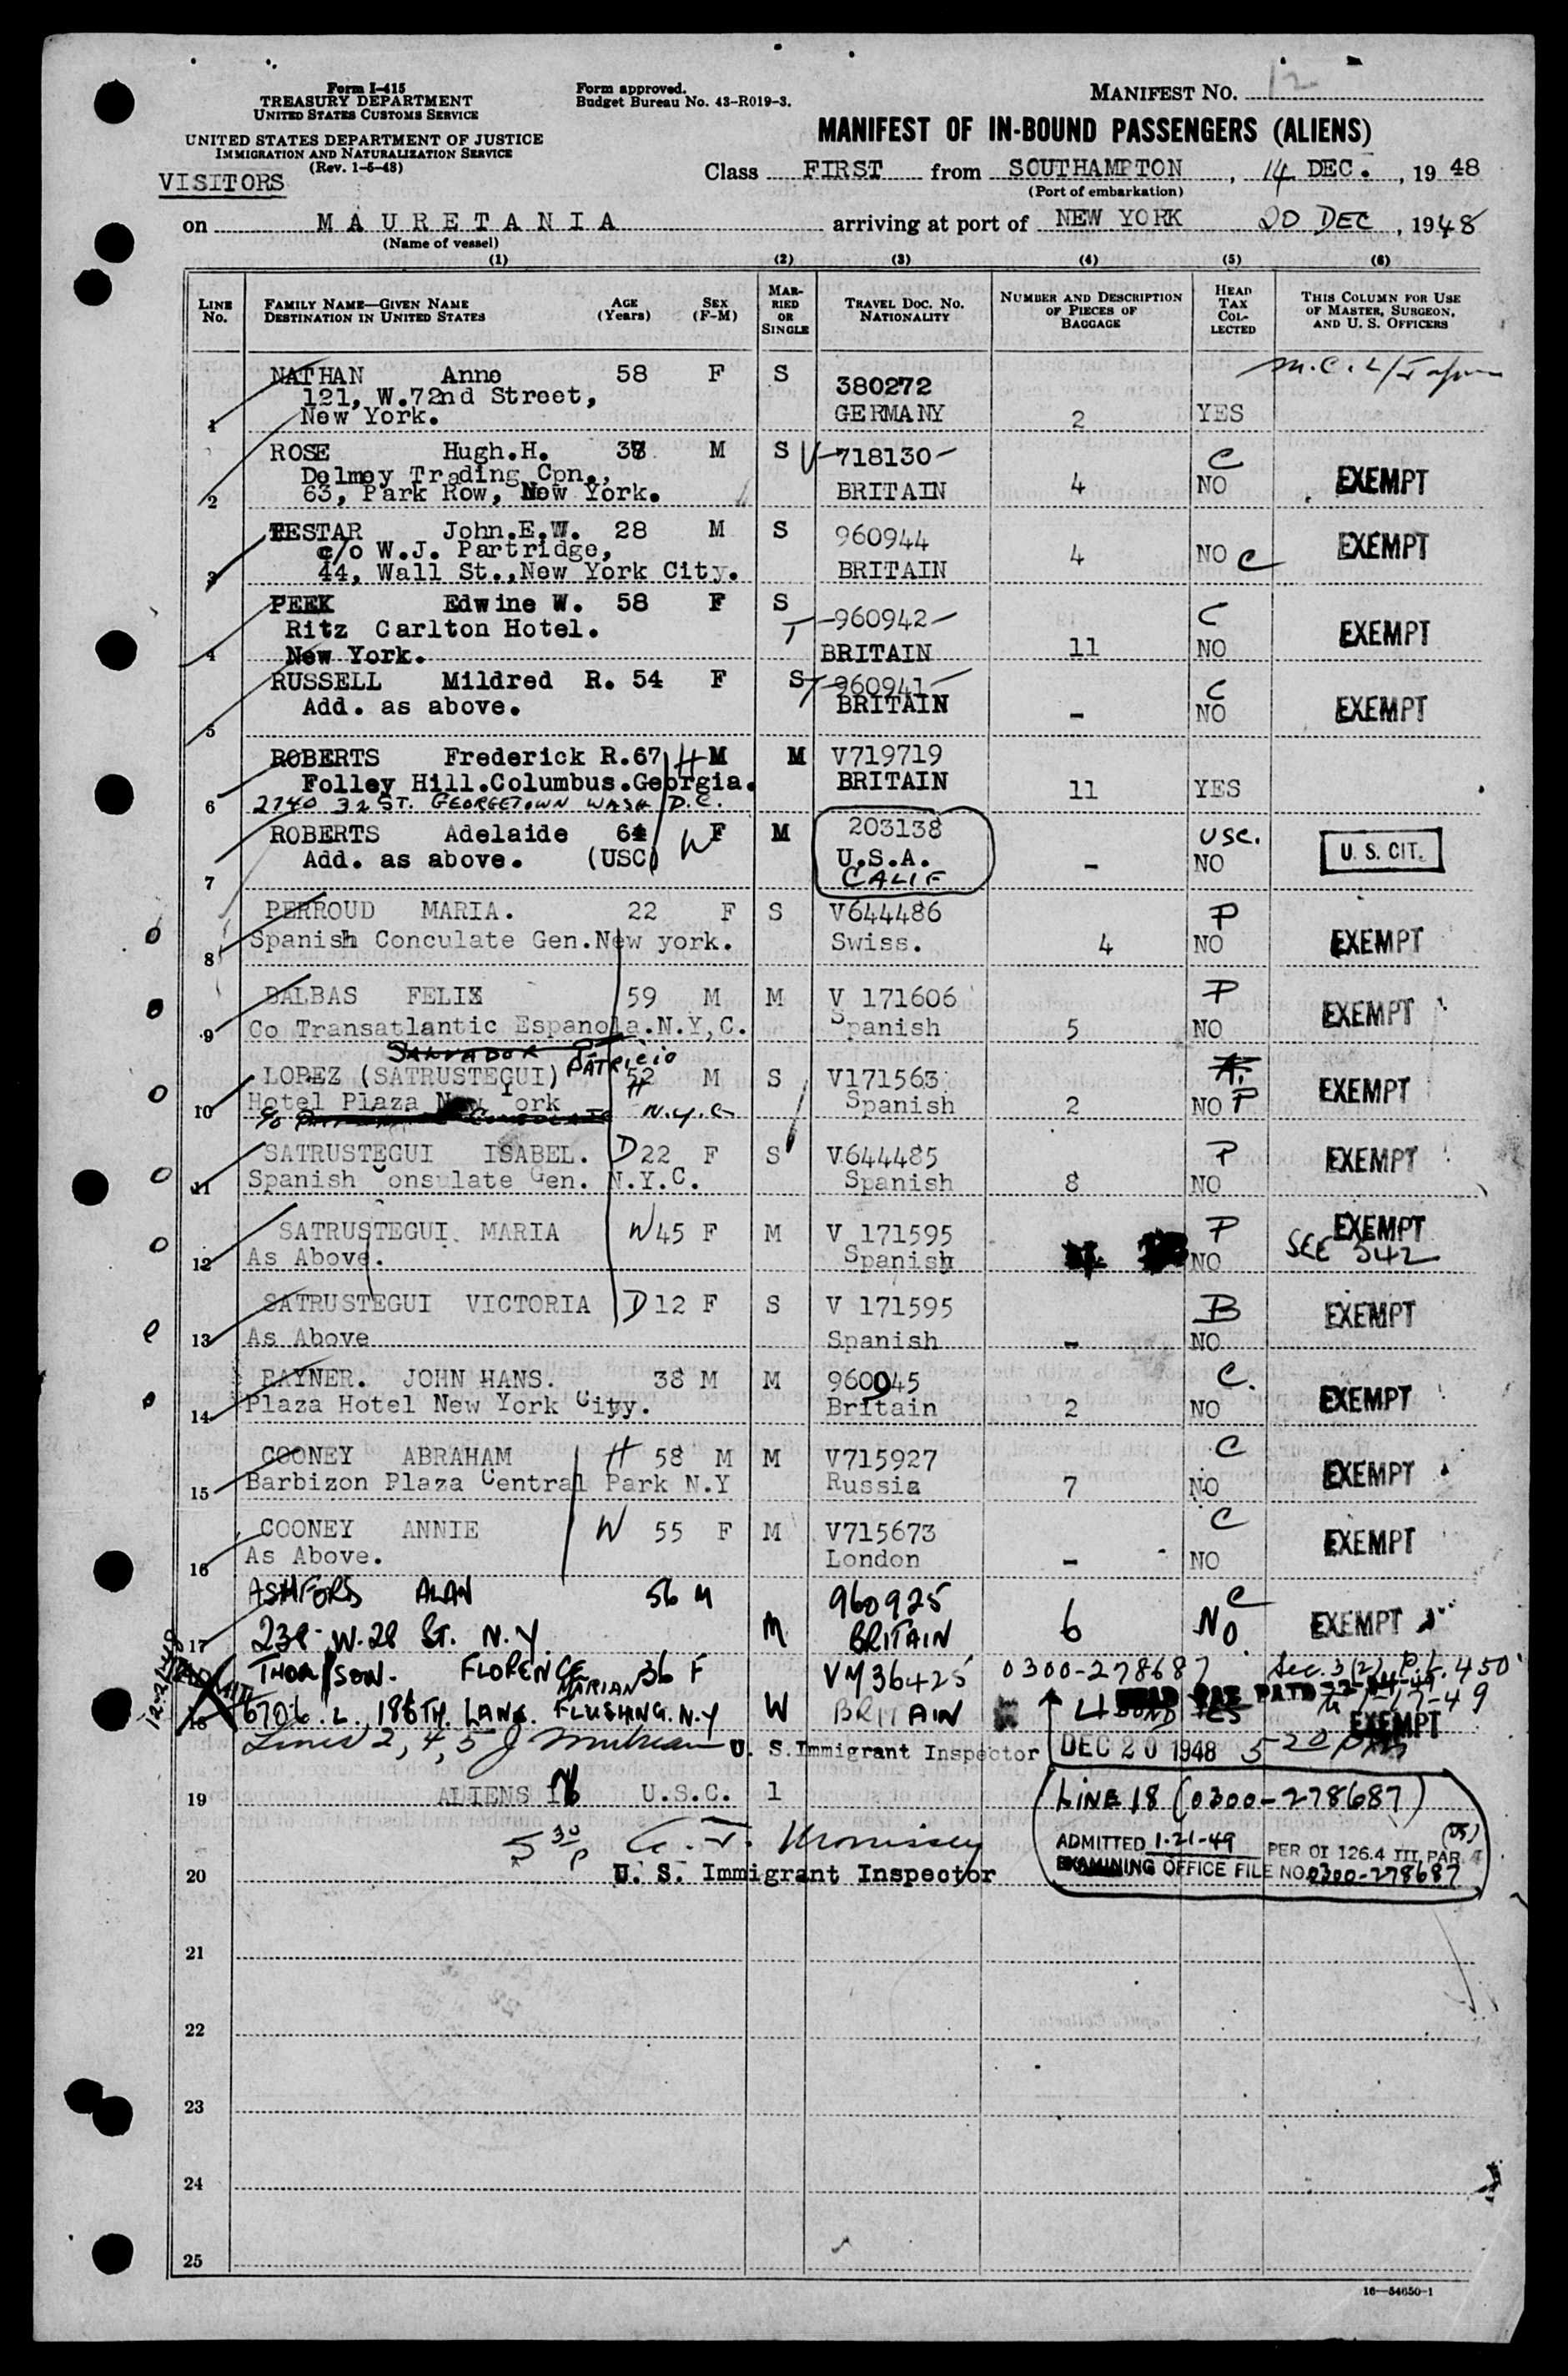 Form I-415
TREASURY DEPARTMENT
UNITED STATES CUSTOMS SERVICE
UNITED STATES DEPARTMENT OF JUSTICE
IMMIGRATION AND NATURALIZATION SERVICE
(Rev. 1-5-48)
VISITORS
Form approved.
Budget Bureau No. 43-R019-3.
MANIFEST NO. 12
MANIFEST OF IN-BOUND PASSENGERS (ALIENS)
Class FIRST from SOUTHAMPTON, 14 DEC., 1948
(Port of embarkation)
on MAURETANIA arriving at port of NEW YORK 20 DEC, 1948
(Name of vessel)
(1) (2) (3) (4) (5) (6)
LINE NO. FAMILY NAME—GIVEN NAME DESTINATION IN UNITED STATES AGE (Years) SEX (F-M) MARRIED OR SINGLE TRAVEL DOC. NO. NATIONALITY NUMBER AND DESCRIPTION OF PIECES OF BAGGAGE HEAD TAX COLLECTED THIS COLUMN FOR USE OF MASTER, SURGEON, AND U. S. OFFICERS
NATHAN Anne 58 F S 380272
121, W.72nd Street,
1 New York. GERMANY 2 YES
ROSE Hugh.H. 38 M S 718130 C
Delmey Trading Cpn.,
2 63, Park Row, New York. BRITAIN 4 NO EXEMPT
TESTAR John.E.W. 28 M S 960944
c/o W.J. Partridge,
3 44, Wall St.,New York City. BRITAIN 4 NO C EXEMPT
PEEK Edwine W. 58 F S 960942 C
Ritz Carlton Hotel.
4 New York. BRITAIN 11 NO EXEMPT
RUSSELL Mildred R. 54 F S 960941 C
Add. as above. BRITAIN - NO EXEMPT
5
ROBERTS Frederick R.67 H M M V719719
Folley Hill.Columbus.Georgia. BRITAIN 11 YES
6 2740 32 ST. GEORGETOWN WASH D.C.
ROBERTS Adelaide 64 W F M 203138 USC.
Add. as above. (USC) U.S.A. - NO U. S. CIT.
7 CALIF
PERROUD MARIA. 22 F S V644486 P
8 Spanish Conculate Gen.New york. Swiss. 4 NO EXEMPT
BALBAS FELIX 59 M M V 171606 P
9 Co Transatlantic Espanola.N.Y,C. Spanish 5 NO EXEMPT
SALVADOR PATRICIO
LOPEZ (SATRUSTEGUI) 52 M S V171563
H
10 Hotel Plaza New York Spanish 2 NO P EXEMPT
N.Y.C
SATRUSTEGUI ISABEL. D 22 F S V644485 P
11 Spanish Consulate Gen. N.Y.C. Spanish 8 NO EXEMPT
SATRUSTEGUI MARIA W 45 F M V 171595 P EXEMPT
12 As Above. Spanish NO SEE 342
SATRUSTEGUI VICTORIA D 12 F S V 171595 B
13 As Above Spanish - NO EXEMPT
RAYNER. JOHN HANS. 38 M M 960045 C.
14 Plaza Hotel New York City. Britain 2 NO EXEMPT
COONEY ABRAHAM H 58 M M V715927 C
15 Barbizon Plaza Central Park N.Y Russia 7 NO EXEMPT
COONEY ANNIE W 55 F M V715673 C
16 As Above. London - NO EXEMPT
ASHFORD ALAN 56 M 960925 C
17 238 W.28 St. N.Y. M BRITAIN 6 NO EXEMPT
THOMSON. FLORENCE MARIAN 36 F VM36425 0300-278687 Sec. 3(2) P.L. 450
18 6706.L, 186TH. LANE. FLUSHING. N.Y W BRITAIN 4 EXEMPT
Lines 2, 4, 5 U. S. Immigrant Inspector DEC 20 1948 5 20 pm
19 ALIENS 16 U.S.C. 1
LINE 18 (0300-278687)
5 30 p
ADMITTED 1-21-49 PER OI 126.4 III, PAR
20 U. S. Immigrant Inspector
EXAMINING OFFICE FILE NO 0300-278687
21
22
23
24
25
16—54650-1